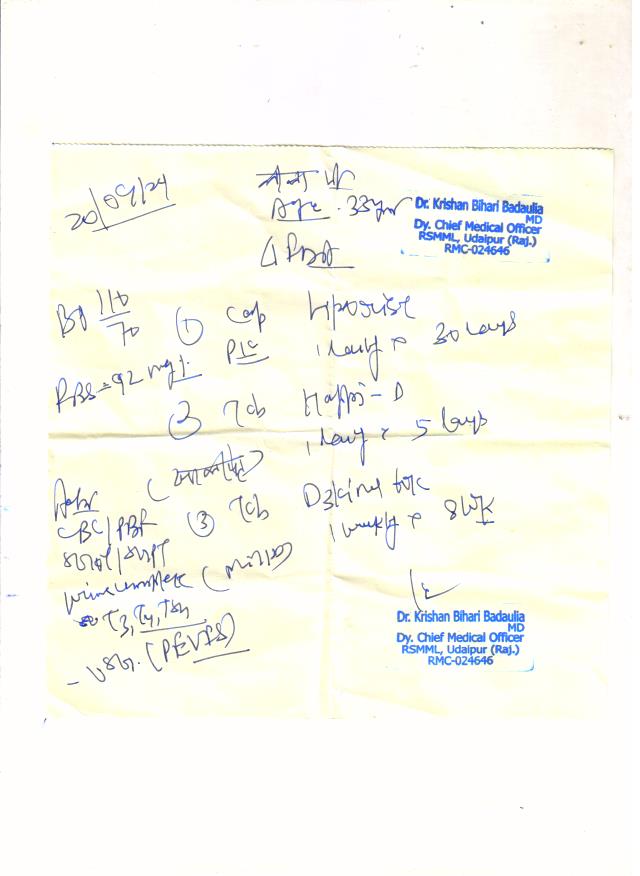 20/09/24
Age. 33yr
Dr. Krishan Bihari Badaulia
MD
Dy. Chief Medical Officer
RSMML, Udaipur (Raj.)
RMC-024646
BP 110/70
① Cap
1 daily x 30 days
RBS = 92 mg%.
② Tab Happi-D
1 daily x 5 days
(खाली पेट)
③ Tab D3
1 weekly x 8 WK
CBC/PBF
SGOT/SGPT
urine complete
T3, T4, TSH
- USG. (PELVIS)
Dr. Krishan Bihari Badaulia
MD
Dy. Chief Medical Officer
RSMML, Udaipur (Raj.)
RMC-024646